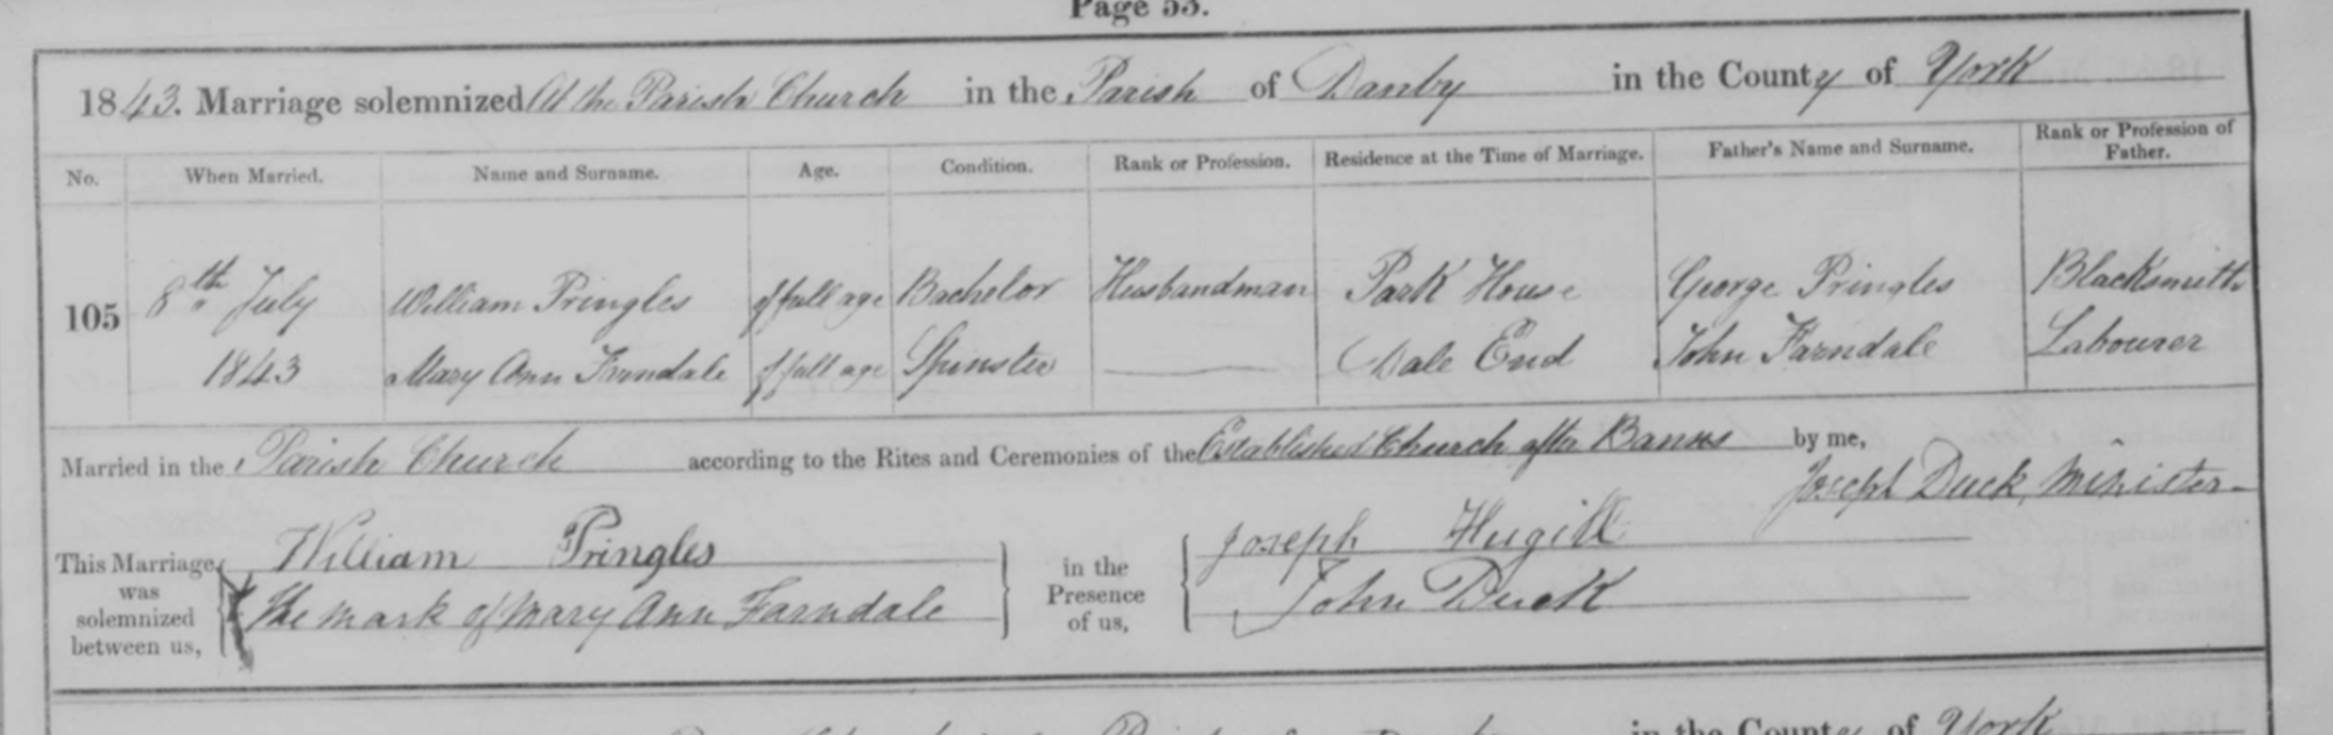 Page 53.
1843. Marriage solemnized At the Parish Church in the Parish of Danby in the County of York
No. When Married. Name and Surname. Age. Condition. Rank or Profession. Residence at the Time of Marriage. Father's Name and Surname. Rank or Profession of Father.
105 8th July William Pringles of full age Bachelor Husbandman Park House George Pringles Blacksmith
1843 Mary Ann Farndale of full age Spinster Dale End John Farndale Labourer
Married in the Parish Church according to the Rites and Ceremonies of the Established Church after Banns by me,
Joseph Duck, Minister
This Marriage was solemnized between us, William Pringles
The mark of Mary Ann Farndale
in the Presence of us, Joseph Hugill
John Duck
in the County of York